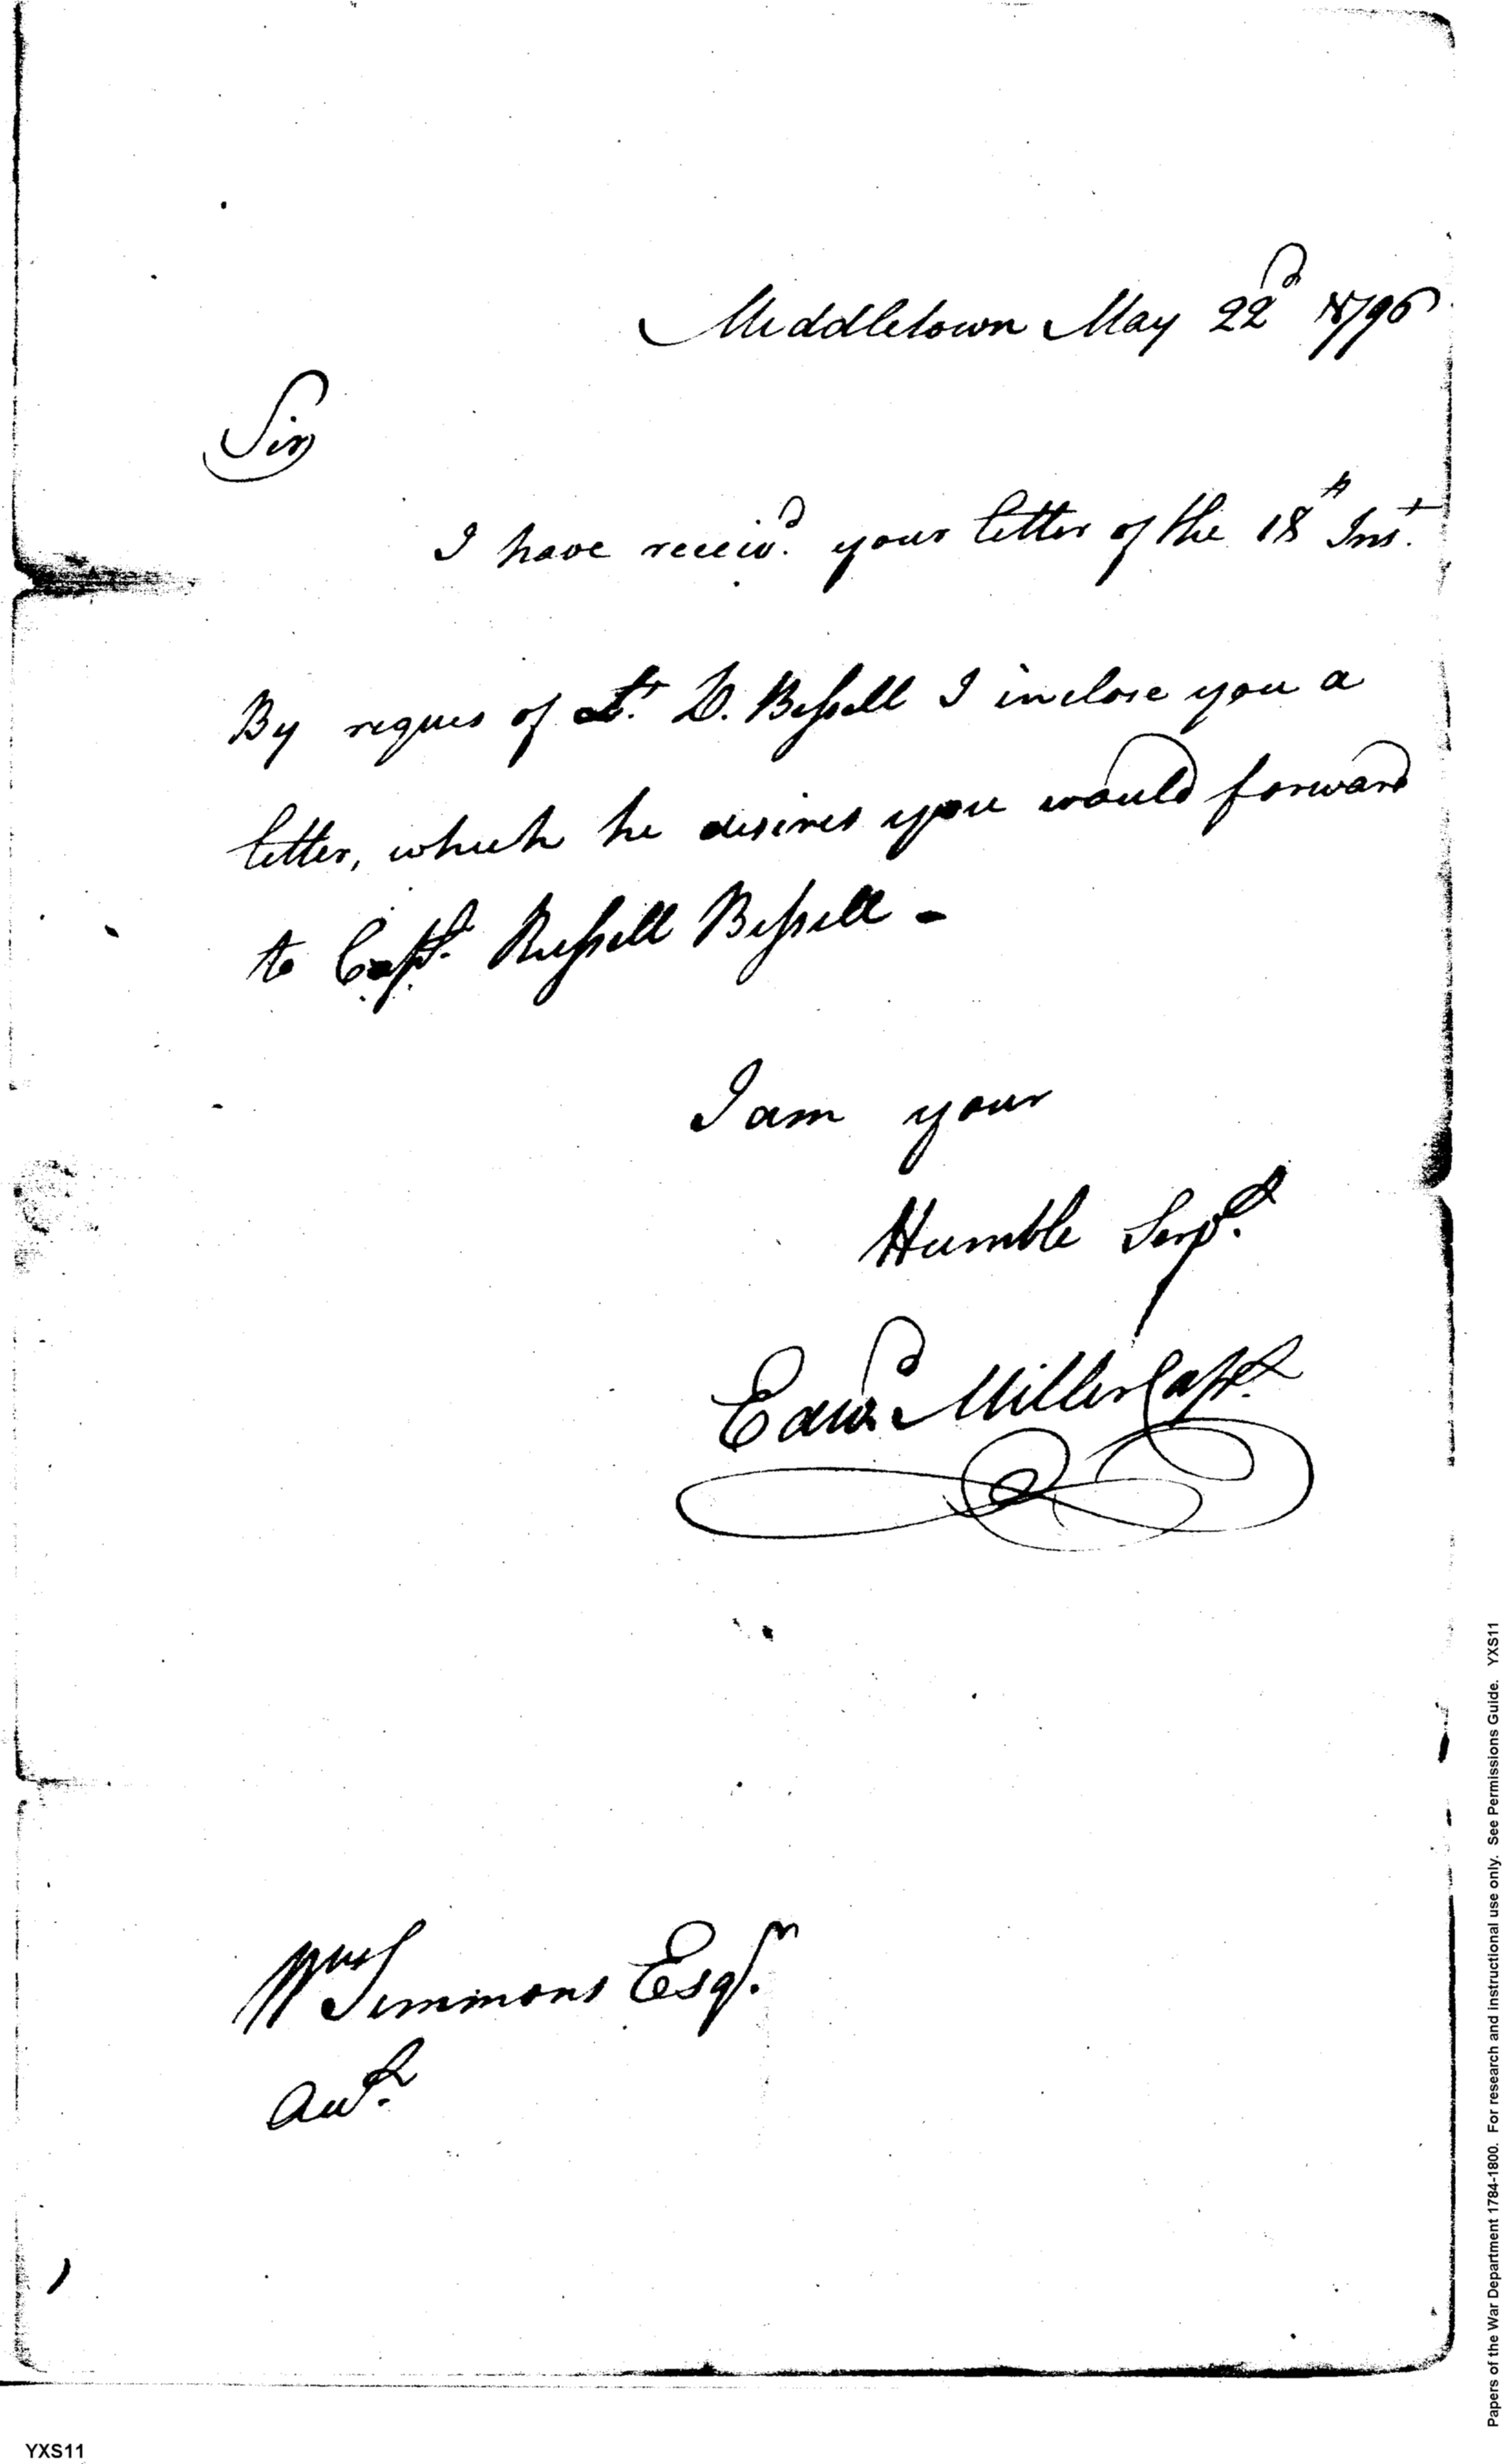 Middletown May 22d 1796
Sir
I have receivd. your letter of the 18th Inst.
By reques of Lt. D. Bissell I inclose you a
letter, which he desires you would forward
to Capt. Russell Bissell -
I am your
Humble Servt.
Edwd. Miller Capt.
Wm Simmons Esqr.
Acct.
Papers of the War Department 1784-1800. For research and instructional use only. See Permissions Guide. YXS11
YXS11